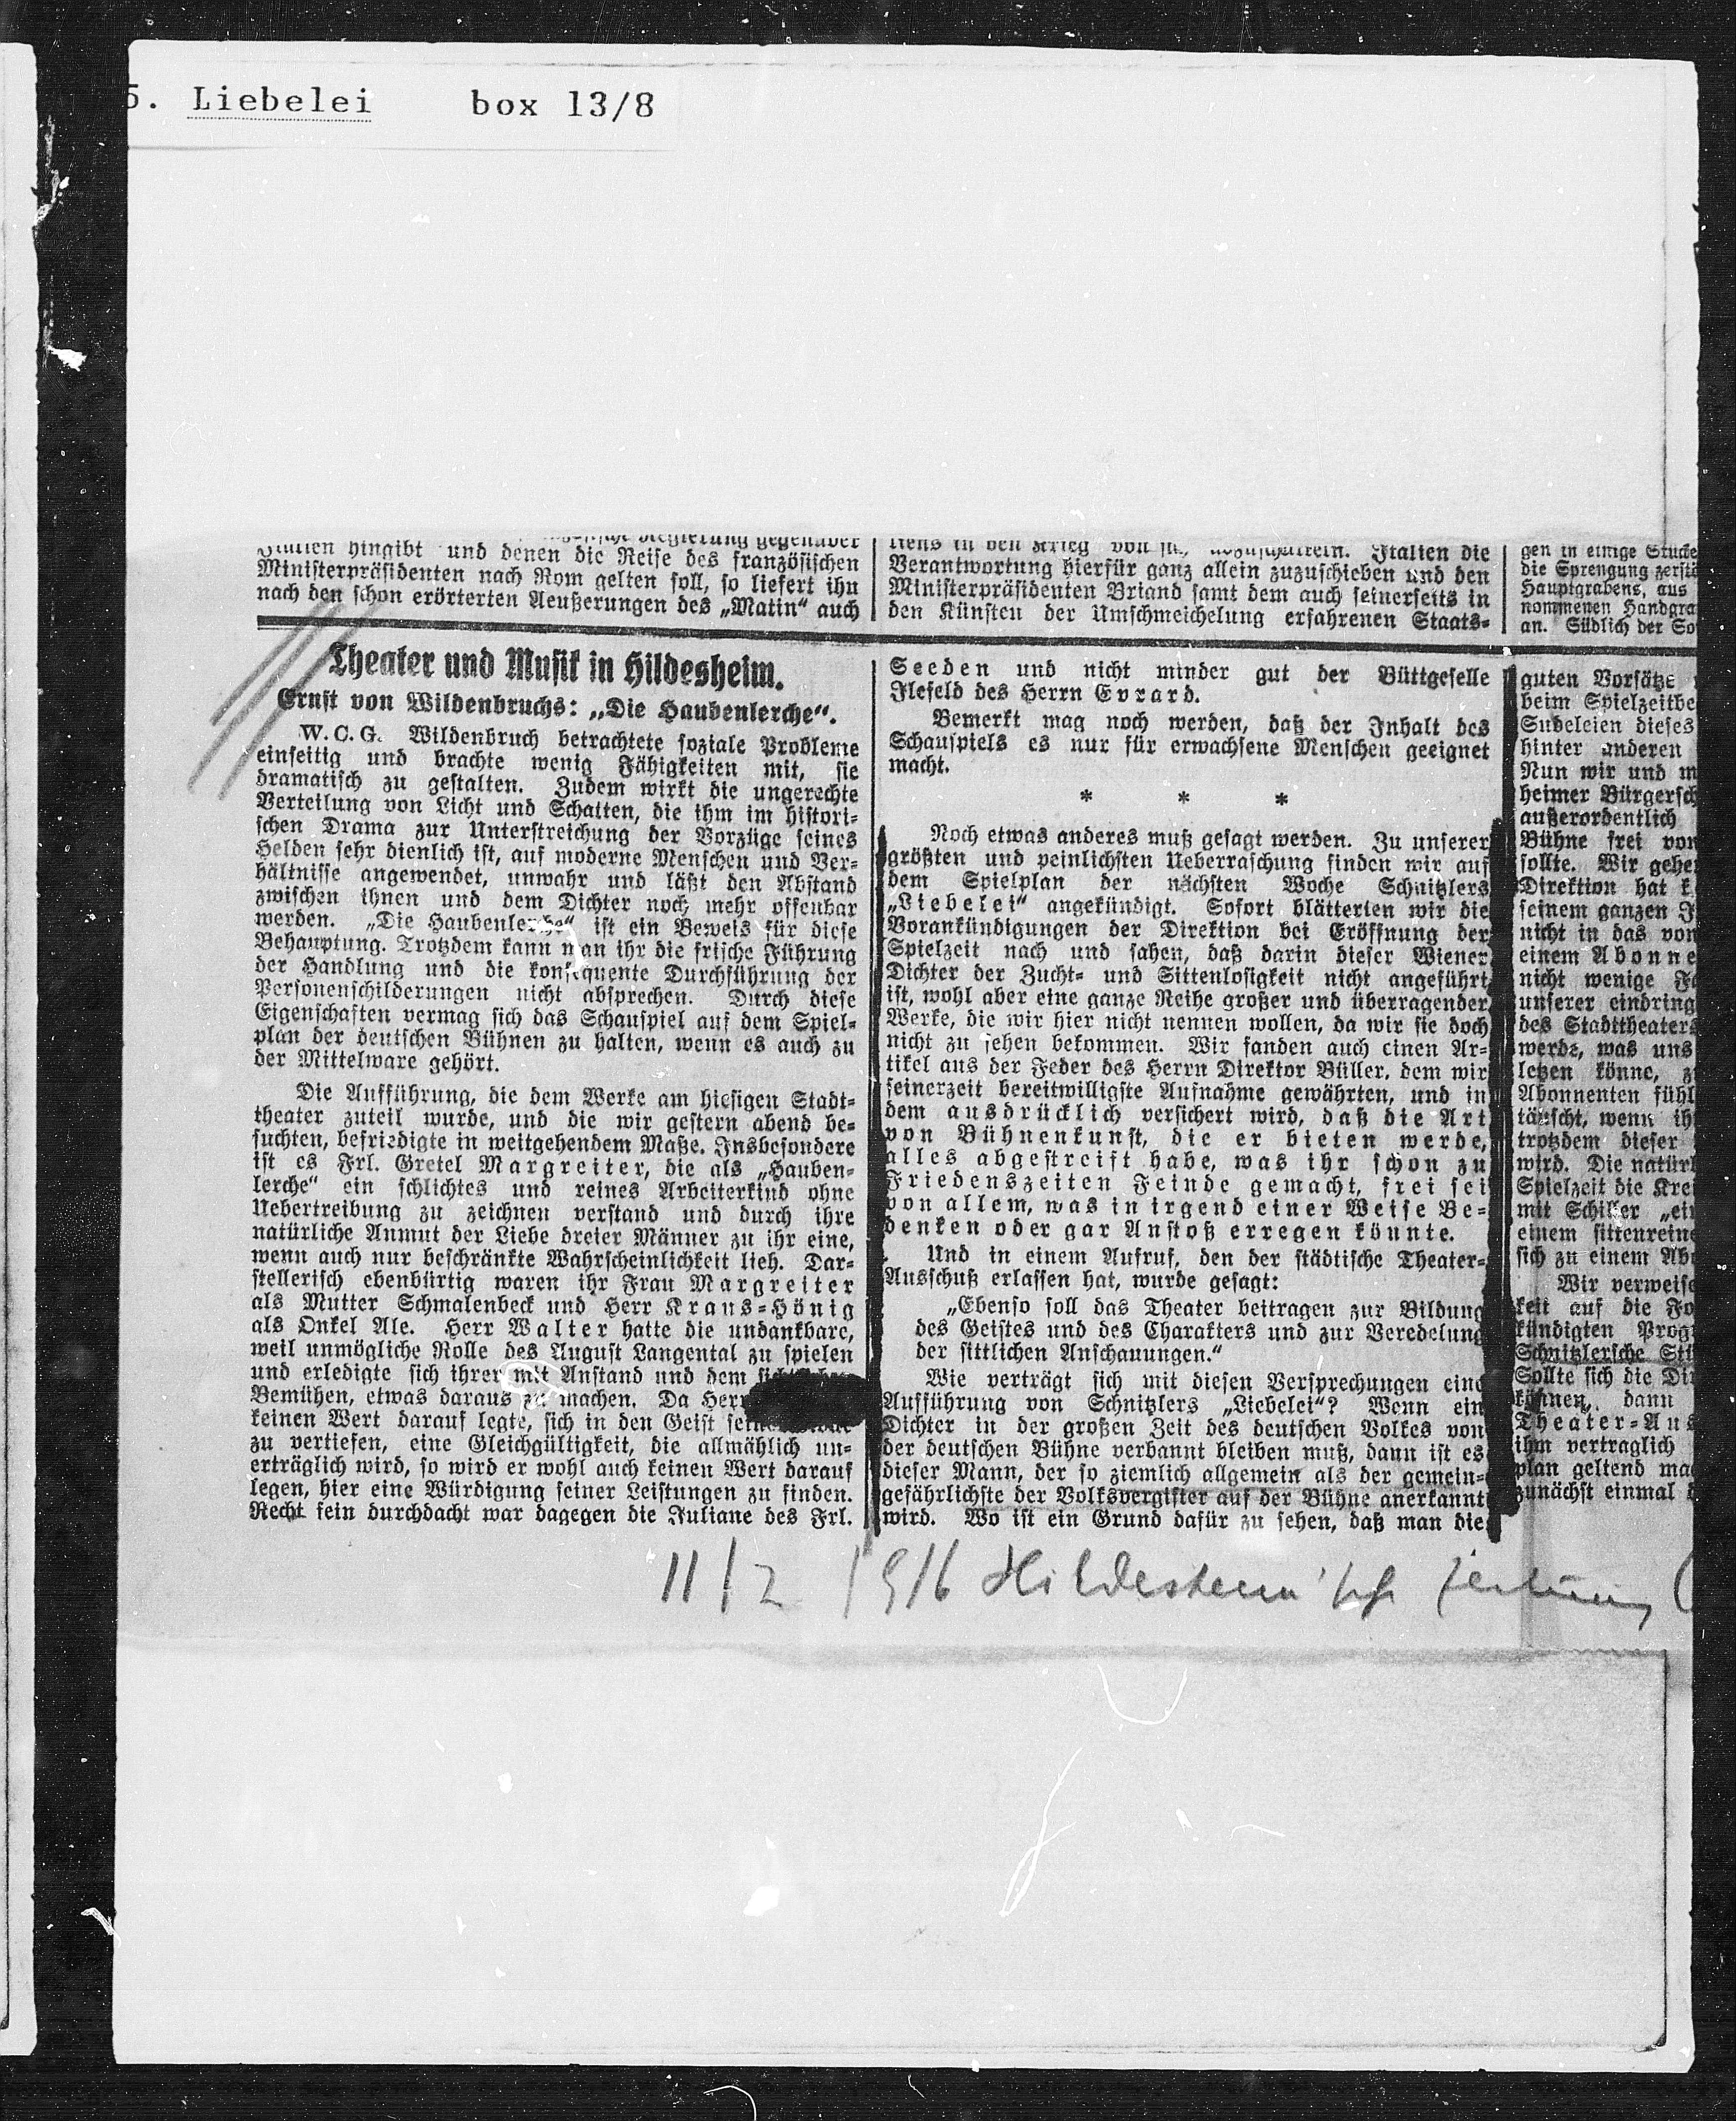 5. Liebelei box 13/8
Italien hingibt und denen die Reise des französischen
Ministerpräsidenten nach Rom gelten soll, so liefert ihn
nach den schon erörterten Aeußerungen des „Matin“ auch
Theater und Musik in Hildesheim.
Ernst von Wildenbruchs: „Die Haubenlerche“.
W. C. G. Wildenbruch betrachtete soziale Probleme
einseitig und brachte wenig Fähigkeiten mit, sie
dramatisch zu gestalten. Zudem wirkt die ungerechte
Verteilung von Licht und Schatten, die ihm im histori-
schen Drama zur Unterstreichung der Vorzüge seines
Helden sehr dienlich ist, auf moderne Menschen und Ver-
hältnisse angewendet, unwahr und läßt den Abstand
zwischen ihnen und dem Dichter noch mehr offenbar
werden. „Die Haubenlerche“ ist ein Beweis für diese
Behauptung. Trotzdem kann man ihr die frische Führung
der Handlung und die konsequente Durchführung der
Personenschilderungen nicht absprechen. Durch diese
Eigenschaften vermag sich das Schauspiel auf dem Spiel-
plan der deutschen Bühnen zu halten, wenn es auch zu
der Mittelware gehört.
Die Aufführung, die dem Werke am hiesigen Stadt-
theater zuteil wurde, und die wir gestern abend be-
suchten, befriedigte in weitgehendem Maße. Insbesondere
ist es Frl. Gretel Margreiter, die als „Hauben-
lerche“ ein schlichtes und reines Arbeiterkind ohne
Uebertreibung zu zeichnen verstand und durch ihre
natürliche Anmut der Liebe dreier Männer zu ihr eine,
wenn auch nur beschränkte Wahrscheinlichkeit lieh. Dar-
stellerisch ebenbürtig waren ihr Frau Margreiter
als Mutter Schmalenbeck und Herr Kraus-Hönig
als Onkel Ale. Herr Walter hatte die undankbare,
weil unmögliche Rolle des August Langental zu spielen
und erledigte sich ihrer mit Anstand und dem
Bemühen, etwas daraus zu machen. Da Herr
keinen Wert darauf legte, sich in den Geist
zu vertiefen, eine Gleichgültigkeit, die allmählich un-
erträglich wird, so wird er wohl auch keinen Wert darauf
legen, hier eine Würdigung seiner Leistungen zu finden.
Recht fein durchdacht war dagegen die Juliane des Frl.
Italien die
Verantwortung hierfür ganz allein zuzuschieben und den
Ministerpräsidenten Briand samt dem auch seinerseits in
den Künsten der Umschmeichelung erfahrenen Staats-
Seeden und nicht minder gut der Büttgeselle
Ilefeld des Herrn Evrard.
Bemerkt mag noch werden, daß der Inhalt des
Schauspiels es nur für erwachsene Menschen geeignet
macht.
* * *
Noch etwas anderes muß gesagt werden. Zu unserer
größten und peinlichsten Ueberraschung finden wir auf
dem Spielplan der nächsten Woche Schnitzlers
„Liebelei“ angekündigt. Sofort blätterten wir die
Vorankündigungen der Direktion bei Eröffnung der
Spielzeit nach und sahen, daß darin dieser Wiener
Dichter der Zucht- und Sittenlosigkeit nicht angeführt
ist, wohl aber eine ganze Reihe großer und überragender
Werke, die wir hier nicht nennen wollen, da wir sie doch
nicht zu sehen bekommen. Wir fanden auch einen Ar-
tikel aus der Feder des Herrn Direktor Büller, dem wir
seinerzeit bereitwilligste Aufnahme gewährten, und in
dem ausdrücklich versichert wird, daß die Art
von Bühnenkunst, die er bieten werde,
alles abgestreift habe, was ihr schon zu
Friedenszeiten Feinde gemacht, frei sei
von allem, was in irgend einer Weise Be-
denken oder gar Anstoß erregen könnte.
Und in einem Aufruf, den der städtische Theater-
Ausschuß erlassen hat, wurde gesagt:
„Ebenso soll das Theater beitragen zur Bildung
des Geistes und des Charakters und zur Veredelung
der sittlichen Anschauungen.“
Wie verträgt sich mit diesen Versprechungen eine
Aufführung von Schnitzlers „Liebelei“? Wenn ein
Dichter in der großen Zeit des deutschen Volkes von
der deutschen Bühne verbannt bleiben muß, dann ist es
dieser Mann, der so ziemlich allgemein als der gemein-
gefährlichste der Volksvergifter auf der Bühne anerkannt
wird. Wo ist ein Grund dafür zu sehen, daß man die
gen in einige Stücke
die Sprengung zerstö
Hauptgrabens, aus
nommenen Handgra
an. Südlich der So
guten Vorsätze
beim Spielzeitbe
Sudeleien dieses
hinter anderen
Nun wir und m
heimer Bürgersch
außerordentlich
Bühne frei von
sollte. Wir gehe
Direktion hat k
seinem ganzen J
nicht in das von
einem Abonne
nicht wenige Fa
unserer eindring
des Stadttheaters
werde, was uns
letzen könne, z
Abonnenten fühl
täuscht, wenn ih
trotzdem dieser
wird. Die natürl
Spielzeit die Krei
mit Schiller „ein
einem sittenreine
sich zu einem Abo
Wir verweise
keit auf die Fo
kündigten Prog
Schnitzlersche Stü
Sollte sich die Dir
können, dann
Theater-Aus
ihm vertraglich
plan geltend mac
zunächst einmal d
11/2 1916 Hildesheim'sche Zeitung (